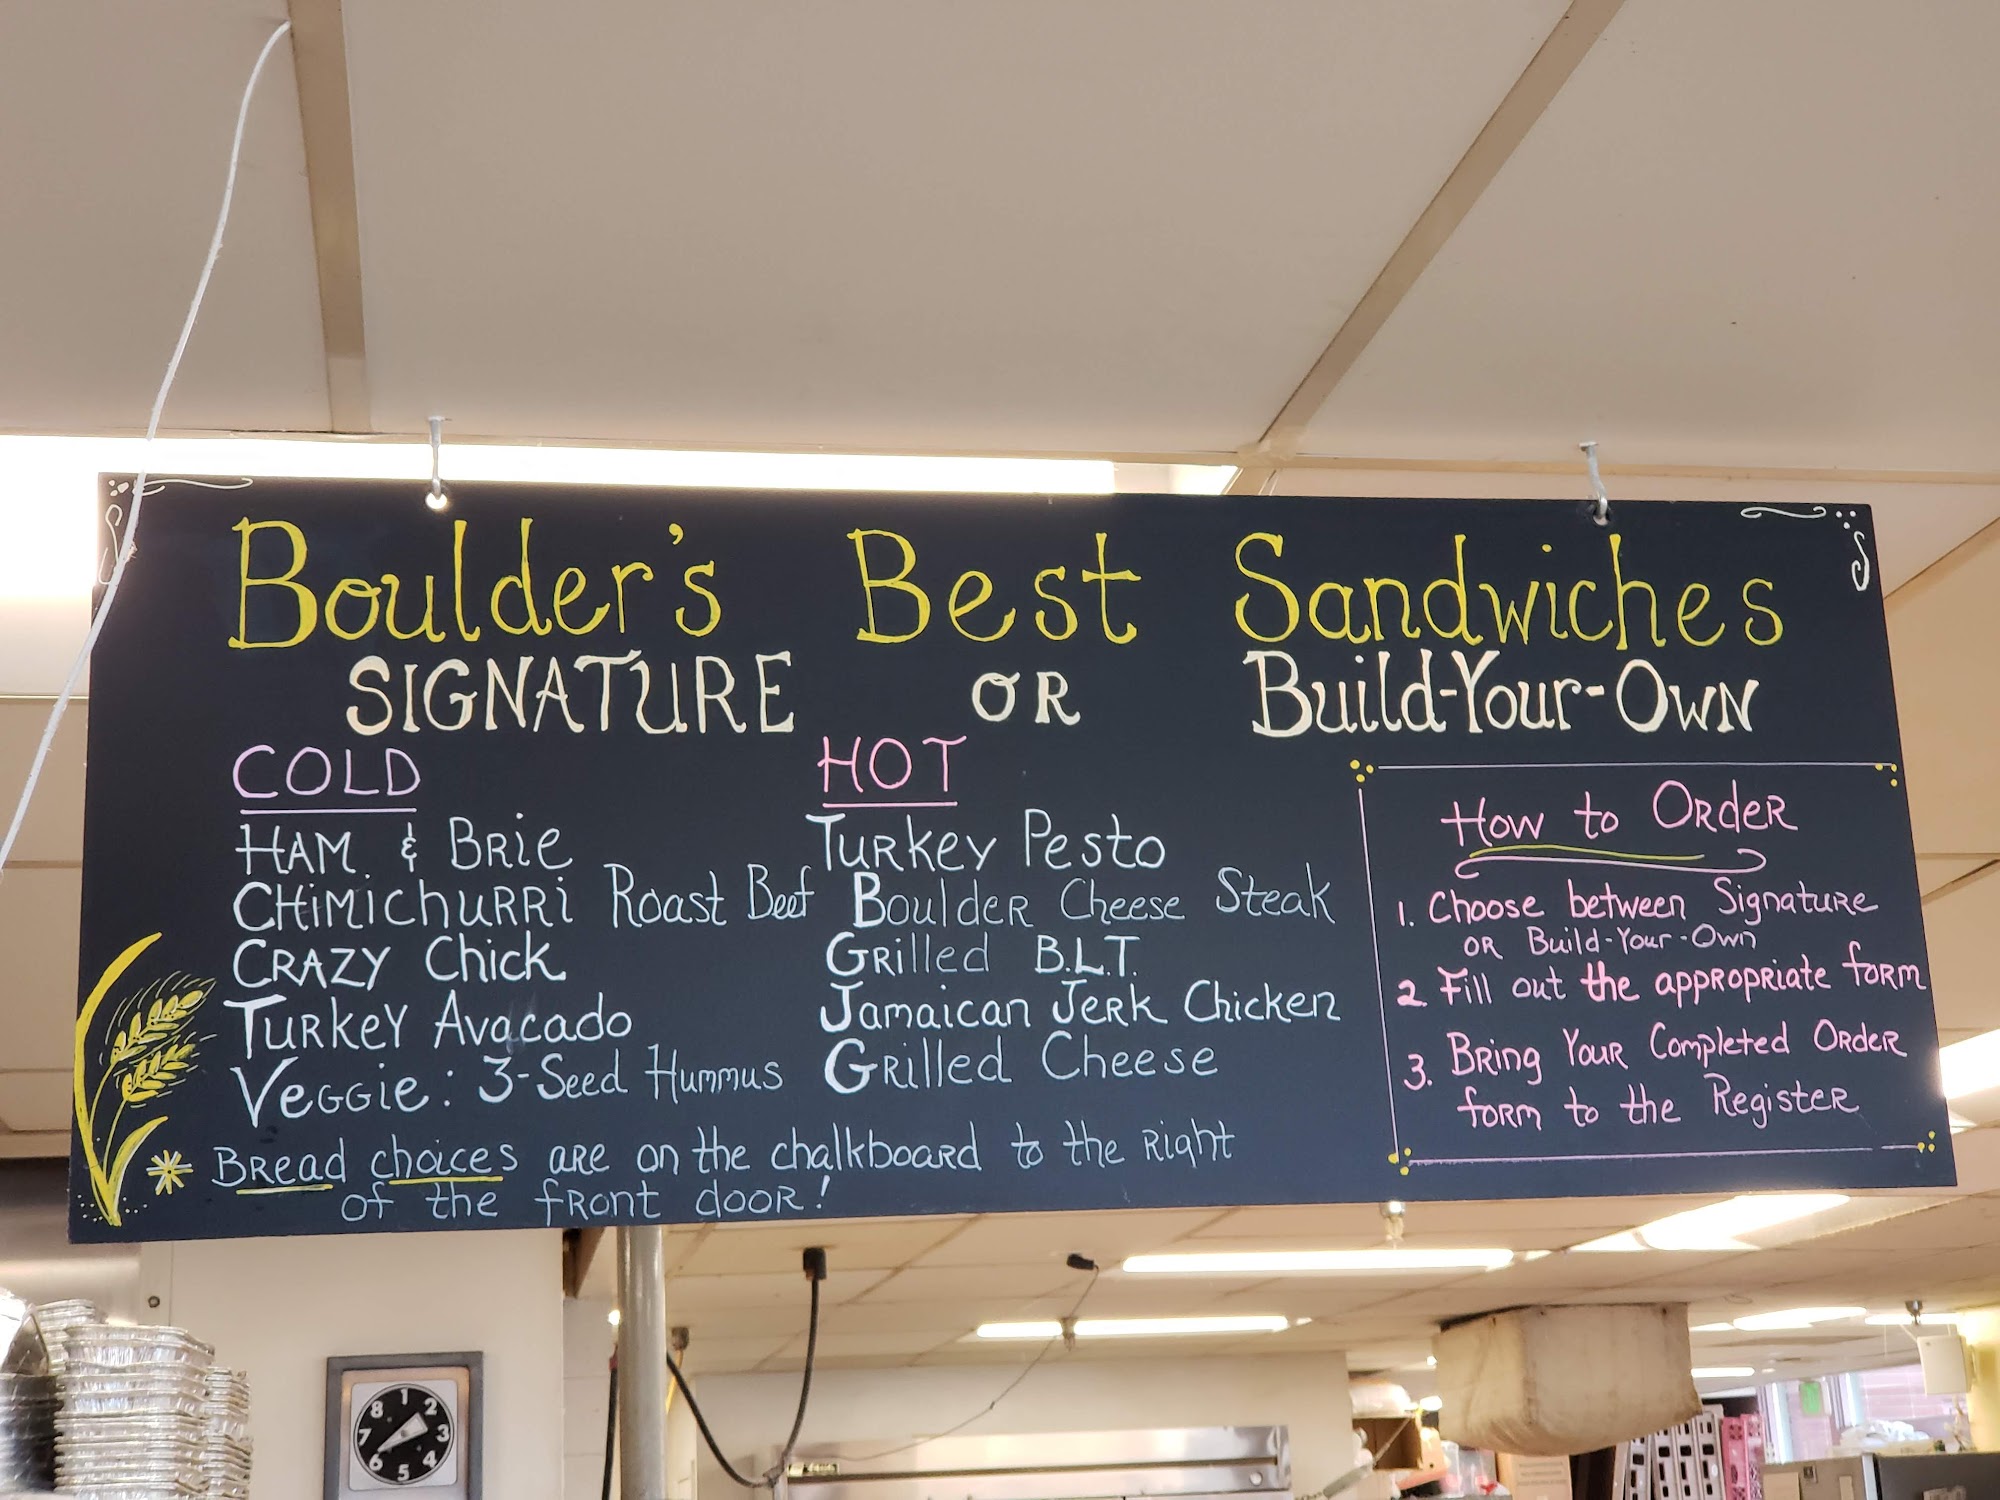 Boulder's Best Sandwiches
SIGNATURE OR Build-Your-Own
COLD
HAM & BRie
CHiMichuRRi Roast Beef
CRAZY Chick
TuRkeY Avacado
VeGGie: 3-Seed Hummus
HOT
TuRkey Pesto
BouldeR Cheese Steak
GRilled B.L.T.
Jamaican JeRk Chicken
GRilled Cheese
* BRead choices aRe on the chalkboaRd to the Right
of the fRont dooR!
How to ORdeR
1. Choose between SignatuRe
OR Build-YouR-Own
2. Fill out the appRopRiate foRm
3. BRing YouR Completed ORdeR
foRm to the RegisteR
1
2
3
4
5
6
7
8